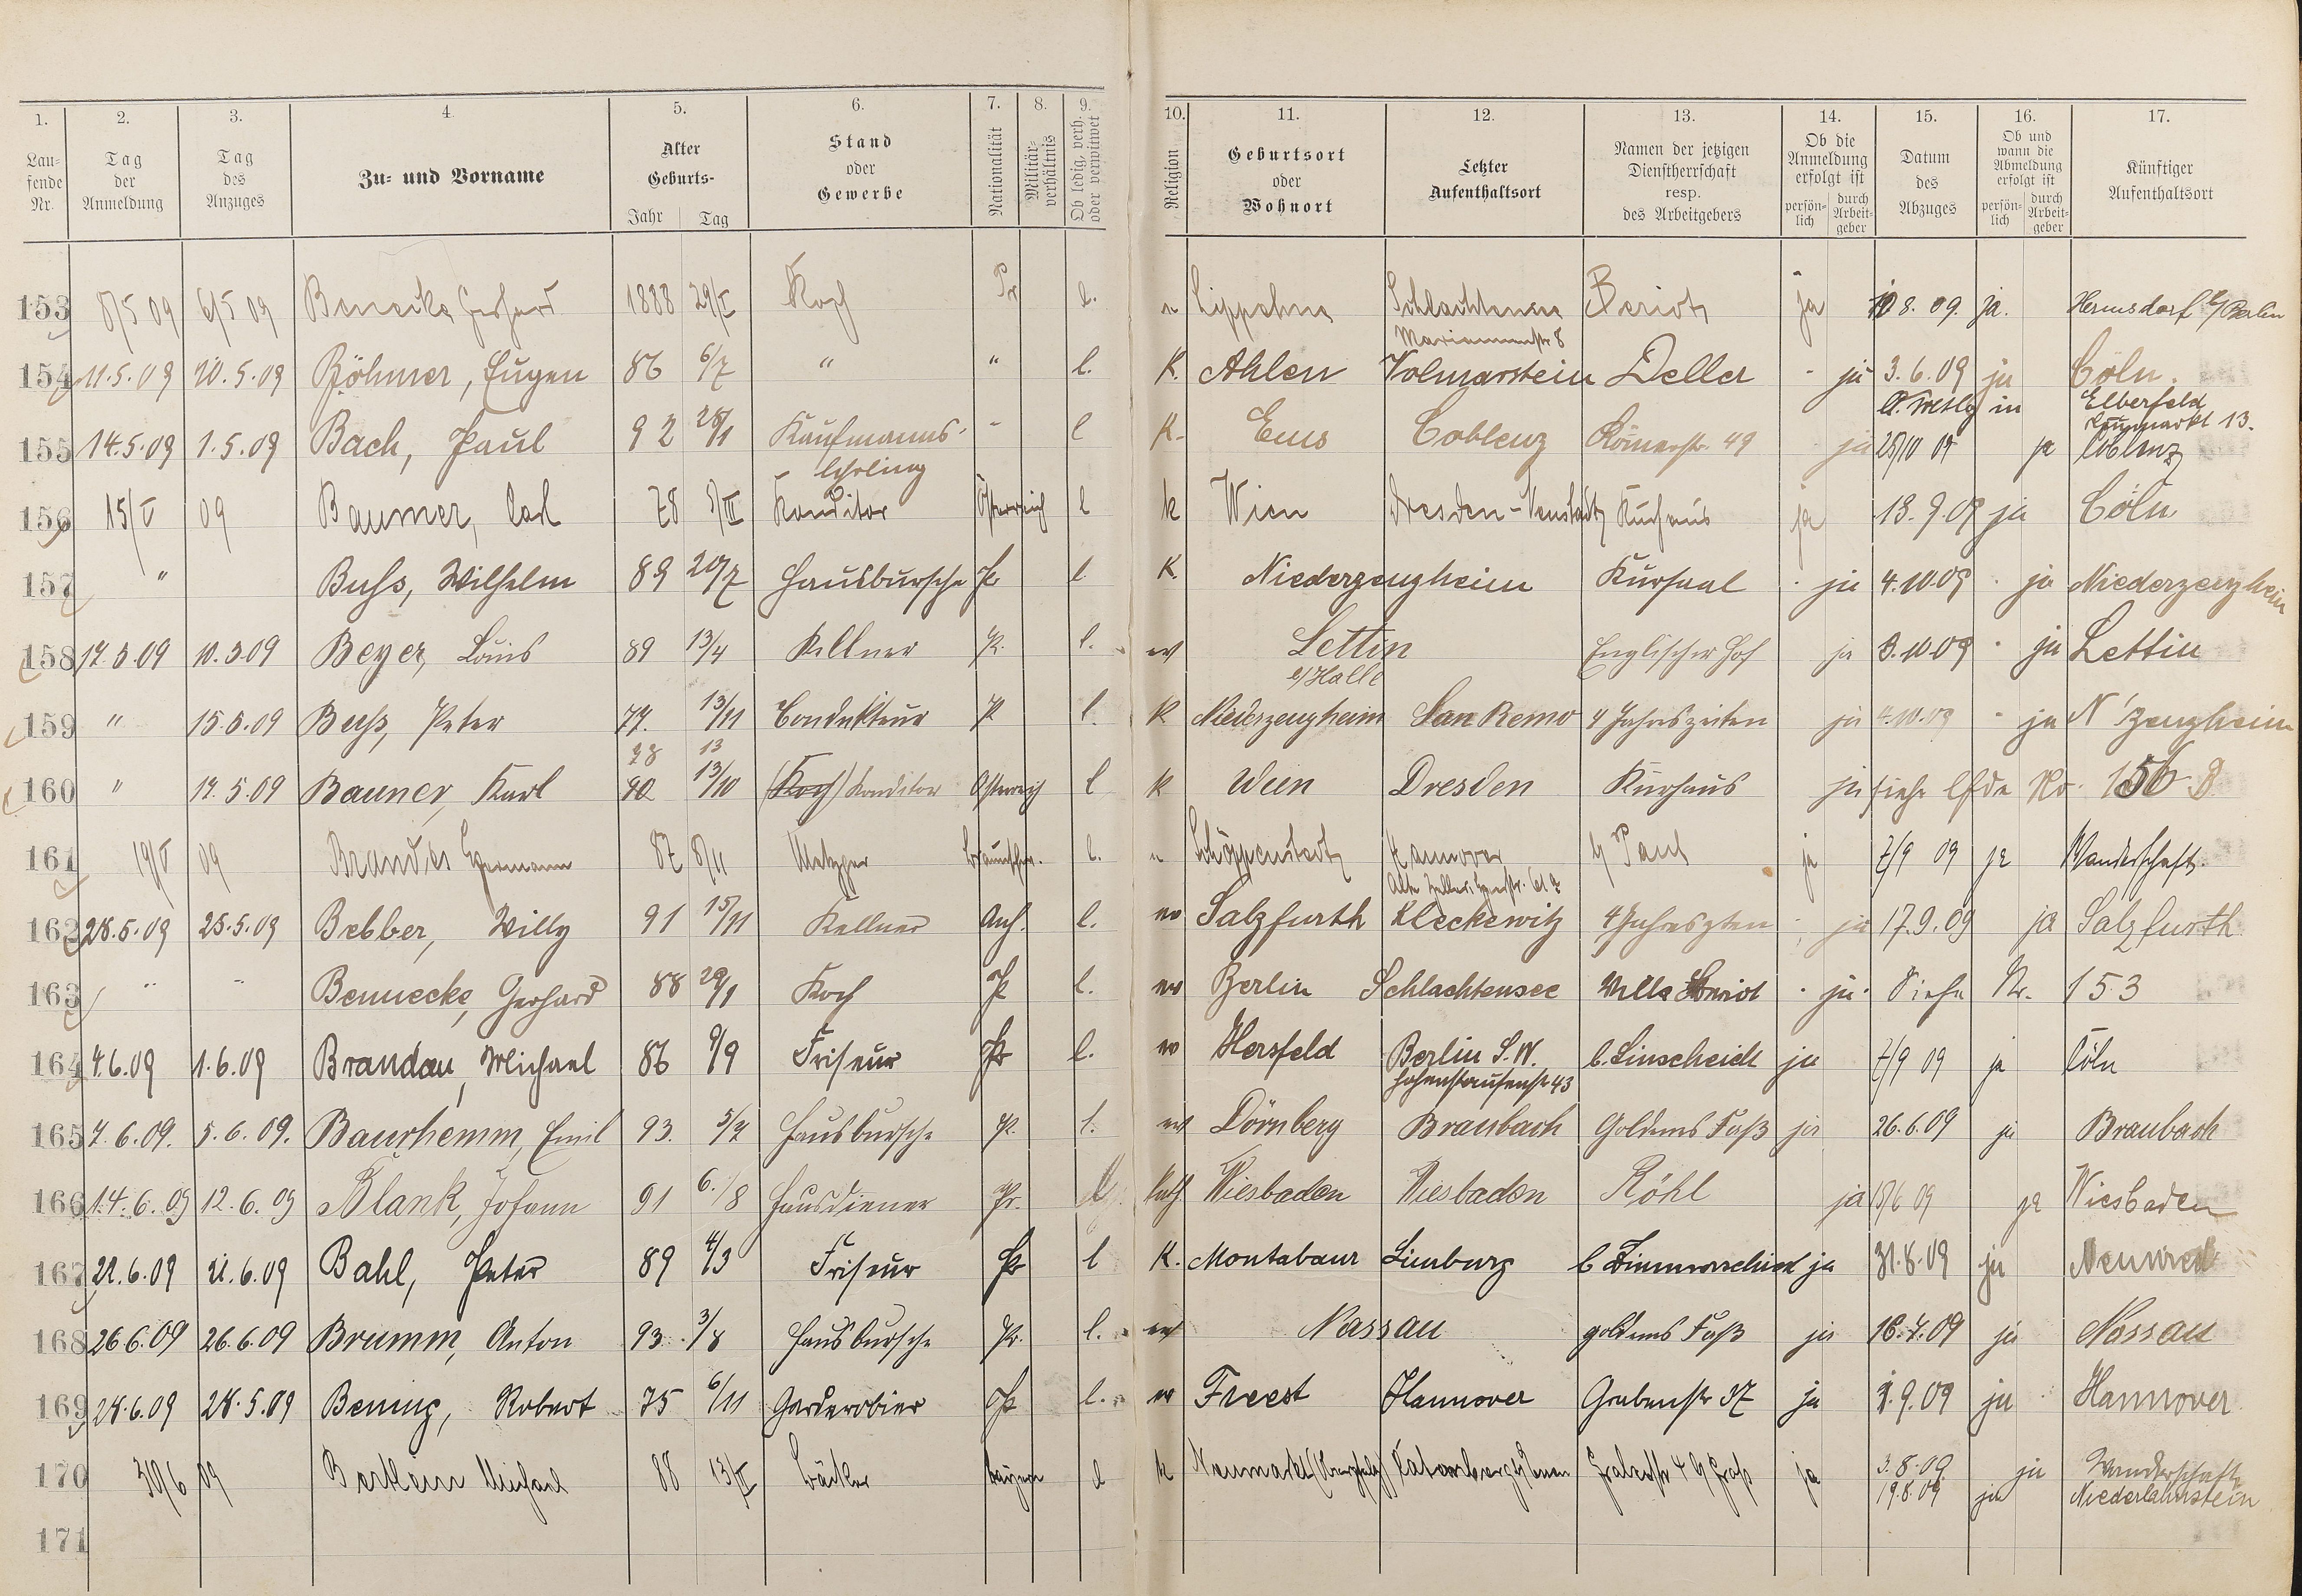 1. 2. 3. 4. 5. 6. 7. 8. 9. 10. 11. 12. 13. 14. 15. 16. 17.
Laufende Nr. Tag der Anmeldung Tag des Anzuges Zu- und Vorname Alter Geburts- Jahr Tag Stand oder Gewerbe Nationalität Militärverhältnis Ob ledig, verh. oder verwitwet Religion Geburtsort oder Wohnort Letzter Aufenthaltsort Namen der jetzigen Dienstherrschaft resp. des Arbeitgebers Ob die Anmeldung erfolgt ist persönlich durch Arbeitgeber Datum des Abzuges Ob und wann die Abmeldung erfolgt ist persönlich durch Arbeitgeber Künftiger Aufenthaltsort
153 8/5 09 6/5 09 Benecke Gerhard 1888 29/I Koch Pr l. Lippehne Schlachtensee Beriot ja 10 8. 09. ja. Hermsdorf b/Berlin
Mariannenstr 8
154 11.5.09 10.5.09 Böhmer, Eugen 86 6/7 " " l. K. Ahlen Volmarstein Deller - ja 3.6.09 ja Cöln.
in Elberfeld
13.
155 14.5.09 1.5.09 Bach, Paul 92 28/1 Kaufmanns- " l K. Ems Coblenz Römerstr. 49 ja 25/10 09 ja Coblenz
lehrling
156 15/V 09 Baumer, Carl 78 Konditor Österreich l k Wien Dresden-Neustadt Kurhaus ja 13.9.09 ja Cöln
157 " Buhs, Wilhelm 89 20/7 Hausbursche Pr l K. Niederzeuzheim Kursaal - ja 4.10.09 - ja Niederzeuzheim
158 17.5.09 10.5.09 Beyer, Louis 89 13/4 Kellner Pr. l. ev Lettin Englischer Hof ja 3.10.09 - ja Lettin
b/Halle
159 " 15.5.09 Buhs, Peter 77. 13/11 Condukteur Pr l. K Niederzeuzheim San Remo 4 Jahreszeiten ja 4.10.09 - ja N'zeuzheim
78 13
160 " 17.5.09 Bauner, Karl 90 13/10 (Koch) Konditor Österreich l k Wien Dresden Kurhaus ja siehe lfde No. 156 B
161 19/V 09 Brandes Hermann 87 8/11 Metzger Braunschw. l. Schöppenstedt Hannover Paul ja 7/9 09 ja Wanderschaft.
162 28.5.09 25.5.09 Bebber, Willy 91 15/11 Kellner Anh. l. ev Salzfurth Kleckewitz 4 Jahreszten - ja 17.9.09 ja Salzfurth
163 " " Bennecke, Gerhard 88 29/1 Koch Pr l. ev Berlin Schlachtensee Villa Beriot - ja - Siehe Nr. 153
164 4.6.09 1.6.09 Brandau, Michael 86 9/9 Friseur Pr l. ev Hersfeld Berlin S.W. C. Linscheid ja 7/9 09 ja Cöln
Hohenstaufenstr 43
165 7.6.09. 5.6.09. Baurhemm, Emil 93. 5/7 Hausbursche Pr. l. ev Dörnberg Braubach Goldenes Faß ja 26.6.09 ja Braubach
166 14.6.09 12.6.09 Blank, Johann 91 6./8 Hausdiener Pr. kath. Wiesbaden Wiesbaden Röhl ja 15/6 09 ja Wiesbaden
167 22.6.09 21.6.09 Bahl, Peter 89 4/3 Friseur Pr l K. Montabaur Limburg ja 31.8.09 ja Neuwied
168 26.6.09 26.6.09 Brumm, Anton 93. 3/8 Hausbursche Pr. l. ev Nassau goldenes Faß ja 16.7.09 ja Nassau
169 28.6.09 28.5.09 Bening, Robert 75 6/11 Garderobier Pr l. ev Freest Hannover Grabenstr 37 ja 1.9.09 ja Hannover
170 30/6 09 Bertlein Michael 88 13/II Bäcker Bayern l k Neumarkt ja 3.8.09 ja Wanderschaft
19.8.09 ja Niederlahnstein
171